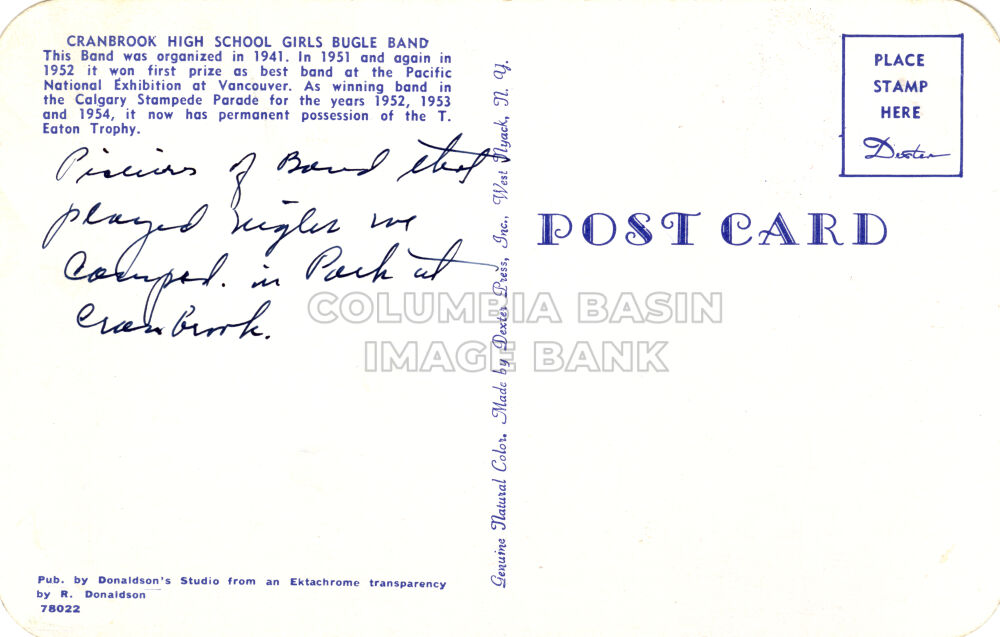 CRANBROOK HIGH SCHOOL GIRLS BUGLE BAND
This Band was organized in 1941. In 1951 and again in
1952 it won first prize as best band at the Pacific
National Exhibition at Vancouver. As winning band in
the Calgary Stampede Parade for the years 1952, 1953
and 1954, it now has permanent possession of the T.
Eaton Trophy.
of Band that
played night we
Camped. in Park at
Cranbrook.
Pub. by Donaldson's Studio from an Ektachrome transparency
by R. Donaldson
78022
Genuine Natural Color. Made by Dexter Press, Inc., West Nyack, N. Y.
PLACE
STAMP
HERE
Dexter
POST CARD
COLUMBIA BASIN
IMAGE BANK